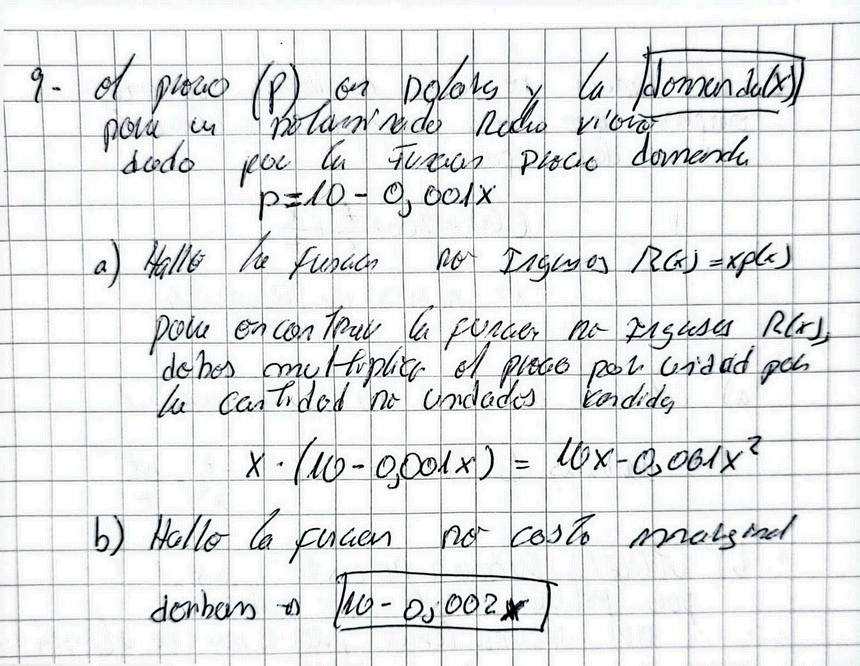 9- el precio (p) en Dolares y la demanda(x)
para un determinado Radio viene
dado por la función precio demanda
p=10 - 0,001x
a) Halle la función de Ingresos R(x)=xp(x)
para encontrar la función de Ingresos R(x),
debes multiplicar el precio por unidad por
la cantidad de unidades vendidas
x · (10 - 0,001x) = 10x-0,001x²
b) Halle la función de costo marginal
→ 10 - 0,002x